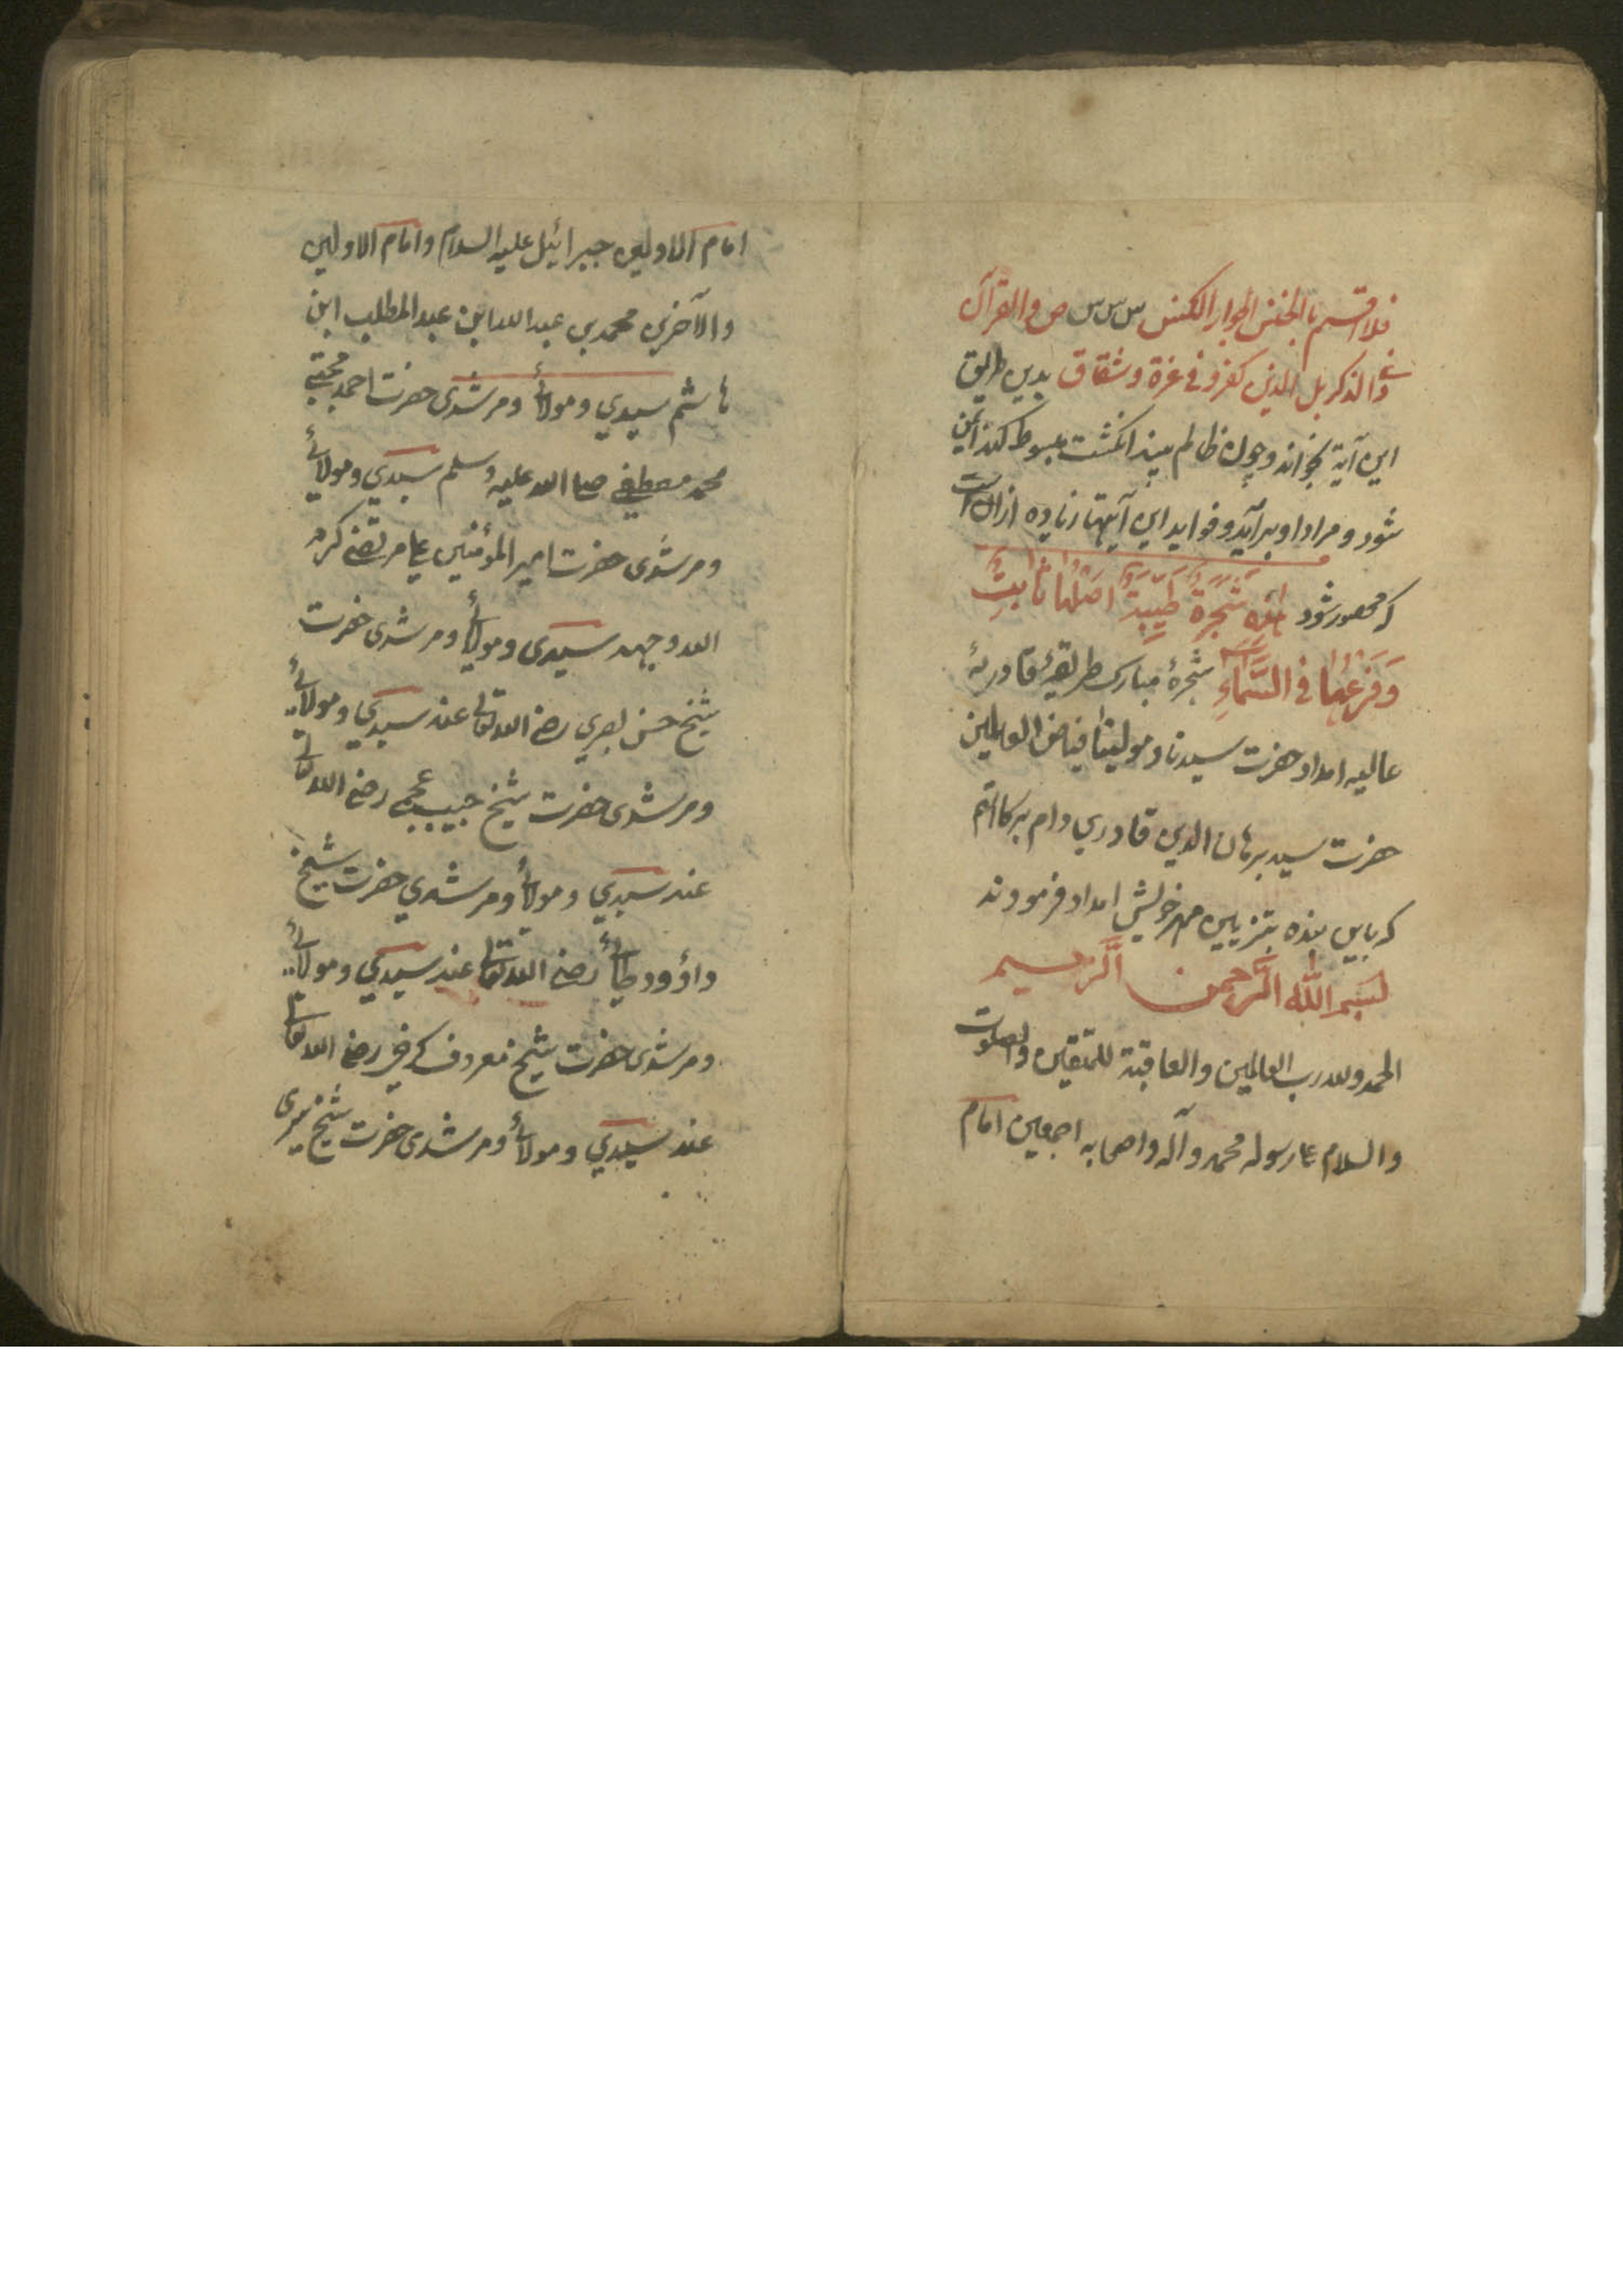 فلا اقسم بالخنس الجوار الکنس س س س ص والقرآن
ذی الذکر بل الذین کفرو فی عزة و شقاق بدین طریق
این آیة بخواند و چون ظالم بیند انگشت مبسوط کند
شود و مراد او برآید و فواید این آیتها زیاده ازان است
که محصور شود هذه شَجَرَةٌ طَیِّبَةٌ اَصْلُهَا ثَابِتٌ
وَفَرْعُهَا فی السَّمَاءِ شجرهٔ مبارک طریقهٔ قادریهٔ
عالیه امداد حضرت سیدنا و مولینا فیاض العالمین
حضرت سید برهان الدین قادری دام برکاتهم
که باین بنده بتزیین مهر خویش امداد فرمودند
بسم الله الرحمن الرحیم
الحمد ولله رب العالمین والعاقبة للمتقین والصلوت
والسلام علی رسوله محمد وآله واصحابه اجمعین امام
امام الاولین جبرائیل علیه السلام وامام الاولین
والآخرین محمد بن عبد الله ابن عبد المطلب ابن
هاشم سیدی ومولائی ومرشدی حضرت احمد مجتبی
محمد مصطفی صلی الله علیه وسلم سیدی ومولائی
ومرشدی حضرت امیر المؤمنین علی مرتضی کرم
الله وجهه سیدی ومولائی ومرشدی حضرت
شیخ حسن بصری رضی الله تعالی عنه سیدی ومولائی
ومرشدی حضرت شیخ حبیب عجمی رضی الله تعالی
عنه سیدی ومولائی ومرشدی حضرت شیخ
داؤود طائی رضی الله تعالی عنه سیدی ومولائی
ومرشدی حضرت شیخ معروف کرخی رضی الله تعالی
عنه سیدی ومولائی ومرشدی حضرت شیخ سری